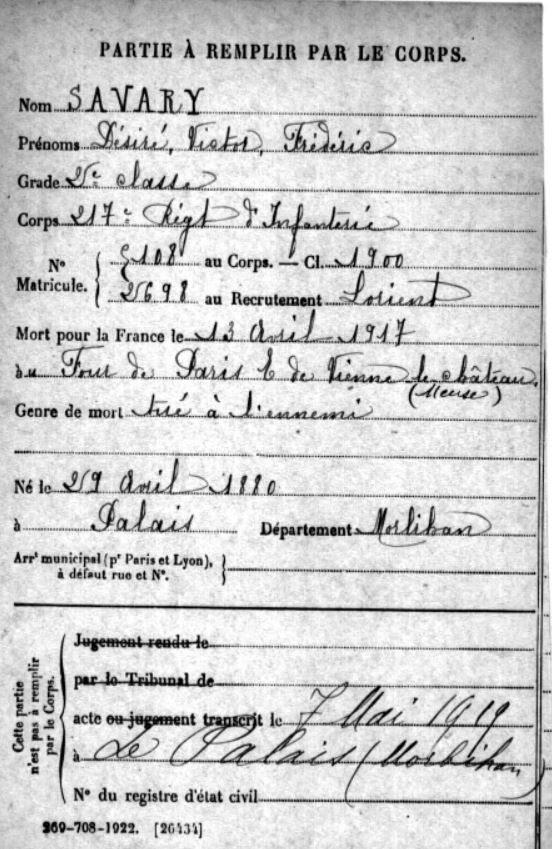 PARTIE À REMPLIR PAR LE CORPS.
Nom SAVARY
Prénoms Désiré, Victor, Frédéric
Grade 2e classe
Corps 217e Régt d'Infanterie
No Matricule. 5108 au Corps. — Cl. 1900
2698 au Recrutement Lorient
Mort pour la France le 13 Avril 1917
au Four de Paris E de Vienne le château.
(Meuse)
Genre de mort tué à l'ennemi
Né le 29 Avril 1880
à Palais Département Morbihan
Arrt municipal (pr Paris et Lyon),
à défaut rue et No.
Cette partie n'est pas à remplir par le Corps.
Jugement rendu le
par le Tribunal de
acte ou jugement transcrit le 7 Mai 1919
à Le Palais (Morbihan)
No du registre d'état civil
269-708-1922. [26434]